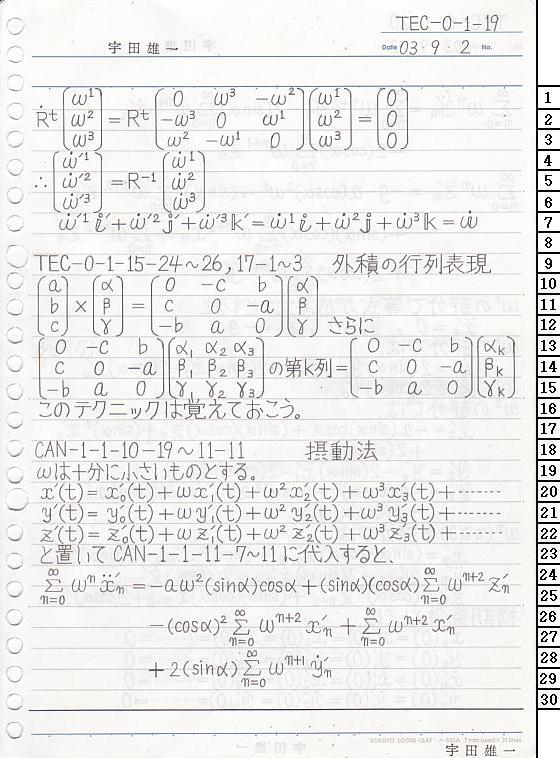 TEC-0-1-19
宇田雄一 Date 03・9・2 No.
Ṙᵗ(ω¹ ω² ω³) = Rᵗ(0 ω³ -ω² / -ω³ 0 ω¹ / ω² -ω¹ 0)(ω¹ ω² ω³) = (0 0 0)
∴ (ω̇'¹ ω̇'² ω̇'³) = R⁻¹(ω̇¹ ω̇² ω̇³)
ω̇'¹ 𝕚' + ω̇'² 𝕛' + ω̇'³ 𝕜' = ω̇¹ 𝕚 + ω̇² 𝕛 + ω̇³ 𝕜 = ω̇
TEC-0-1-15-24~26, 17-1~3 外積の行列表現
(a b c) × (α β γ) = (0 -c b / c 0 -a / -b a 0)(α β γ) さらに
(0 -c b / c 0 -a / -b a 0)(α₁ α₂ α₃ / β₁ β₂ β₃ / γ₁ γ₂ γ₃) の第k列 = (0 -c b / c 0 -a / -b a 0)(αₖ βₖ γₖ)
このテクニックは覚えておこう。
CAN-1-1-10-19~11-11 摂動法
ωは十分に小さいものとする。
x'(t) = x'₀(t) + ω x'₁(t) + ω² x'₂(t) + ω³ x'₃(t) + ‥‥‥
y'(t) = y'₀(t) + ω y'₁(t) + ω² y'₂(t) + ω³ y'₃(t) + ‥‥‥
z'(t) = z'₀(t) + ω z'₁(t) + ω² z'₂(t) + ω³ z'₃(t) + ‥‥‥
と置いて CAN-1-1-11-7~11 に代入すると、
∞Σn=0 ωⁿ ẍ'ₙ = -aω²(sinα)cosα + (sinα)(cosα) ∞Σn=0 ωⁿ⁺² z'ₙ
-(cosα)² ∞Σn=0 ωⁿ⁺² x'ₙ + ∞Σn=0 ωⁿ⁺² x'ₙ
+ 2(sinα) ∞Σn=0 ωⁿ⁺¹ ẏ'ₙ
KOKUYO LOOSE-LEAF ノ-836A 7mm ruled × 31 lines
宇田雄一
1
2
3
4
5
6
7
8
9
10
11
12
13
14
15
16
17
18
19
20
21
22
23
24
25
26
27
28
29
30